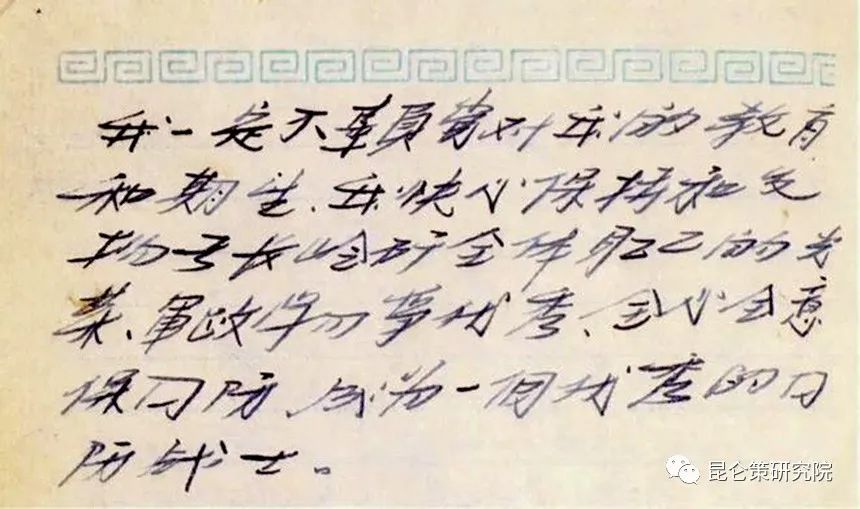 我一定不辜負党对我的教育
和期望、我决心保持和发
扬弓长岭矿全体职工的光
荣、軍政学习争优秀、全心全意
保国防、成为一個优秀的国
防战士。
昆仑策研究院